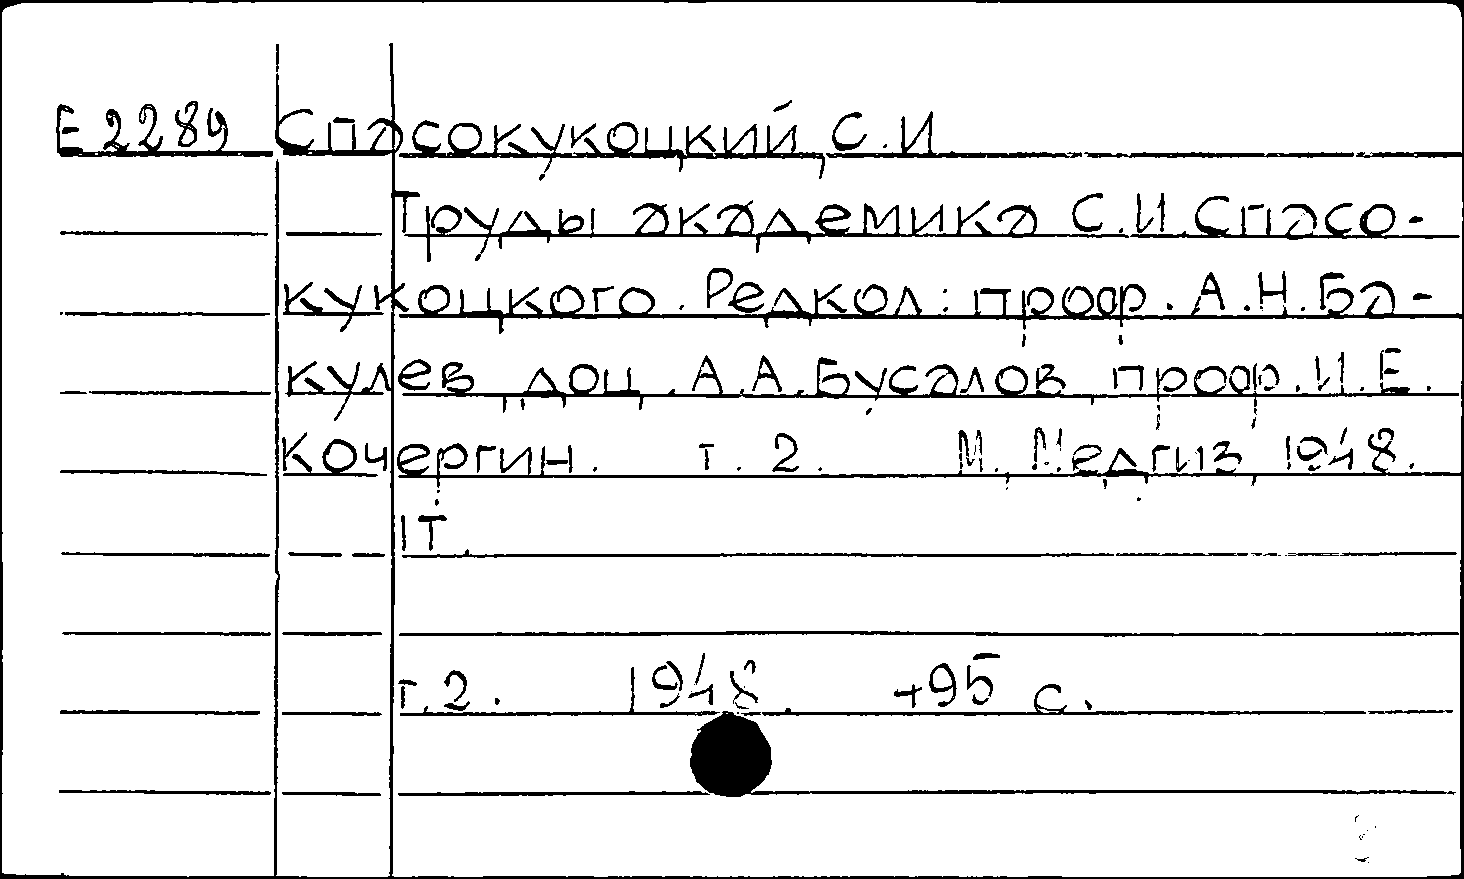 Е2289 Спасокукоцкий, С.И.
Труды академика С.И.Спасо-
кукоцкого. Редкол: проф. А.Н.Ба-
кулев, доц. А.А.Бусалов, проф. И.Е.
Кочергин. т. 2. М., Медгиз, 1948.
1т.
т.2. 1948. 495 с.